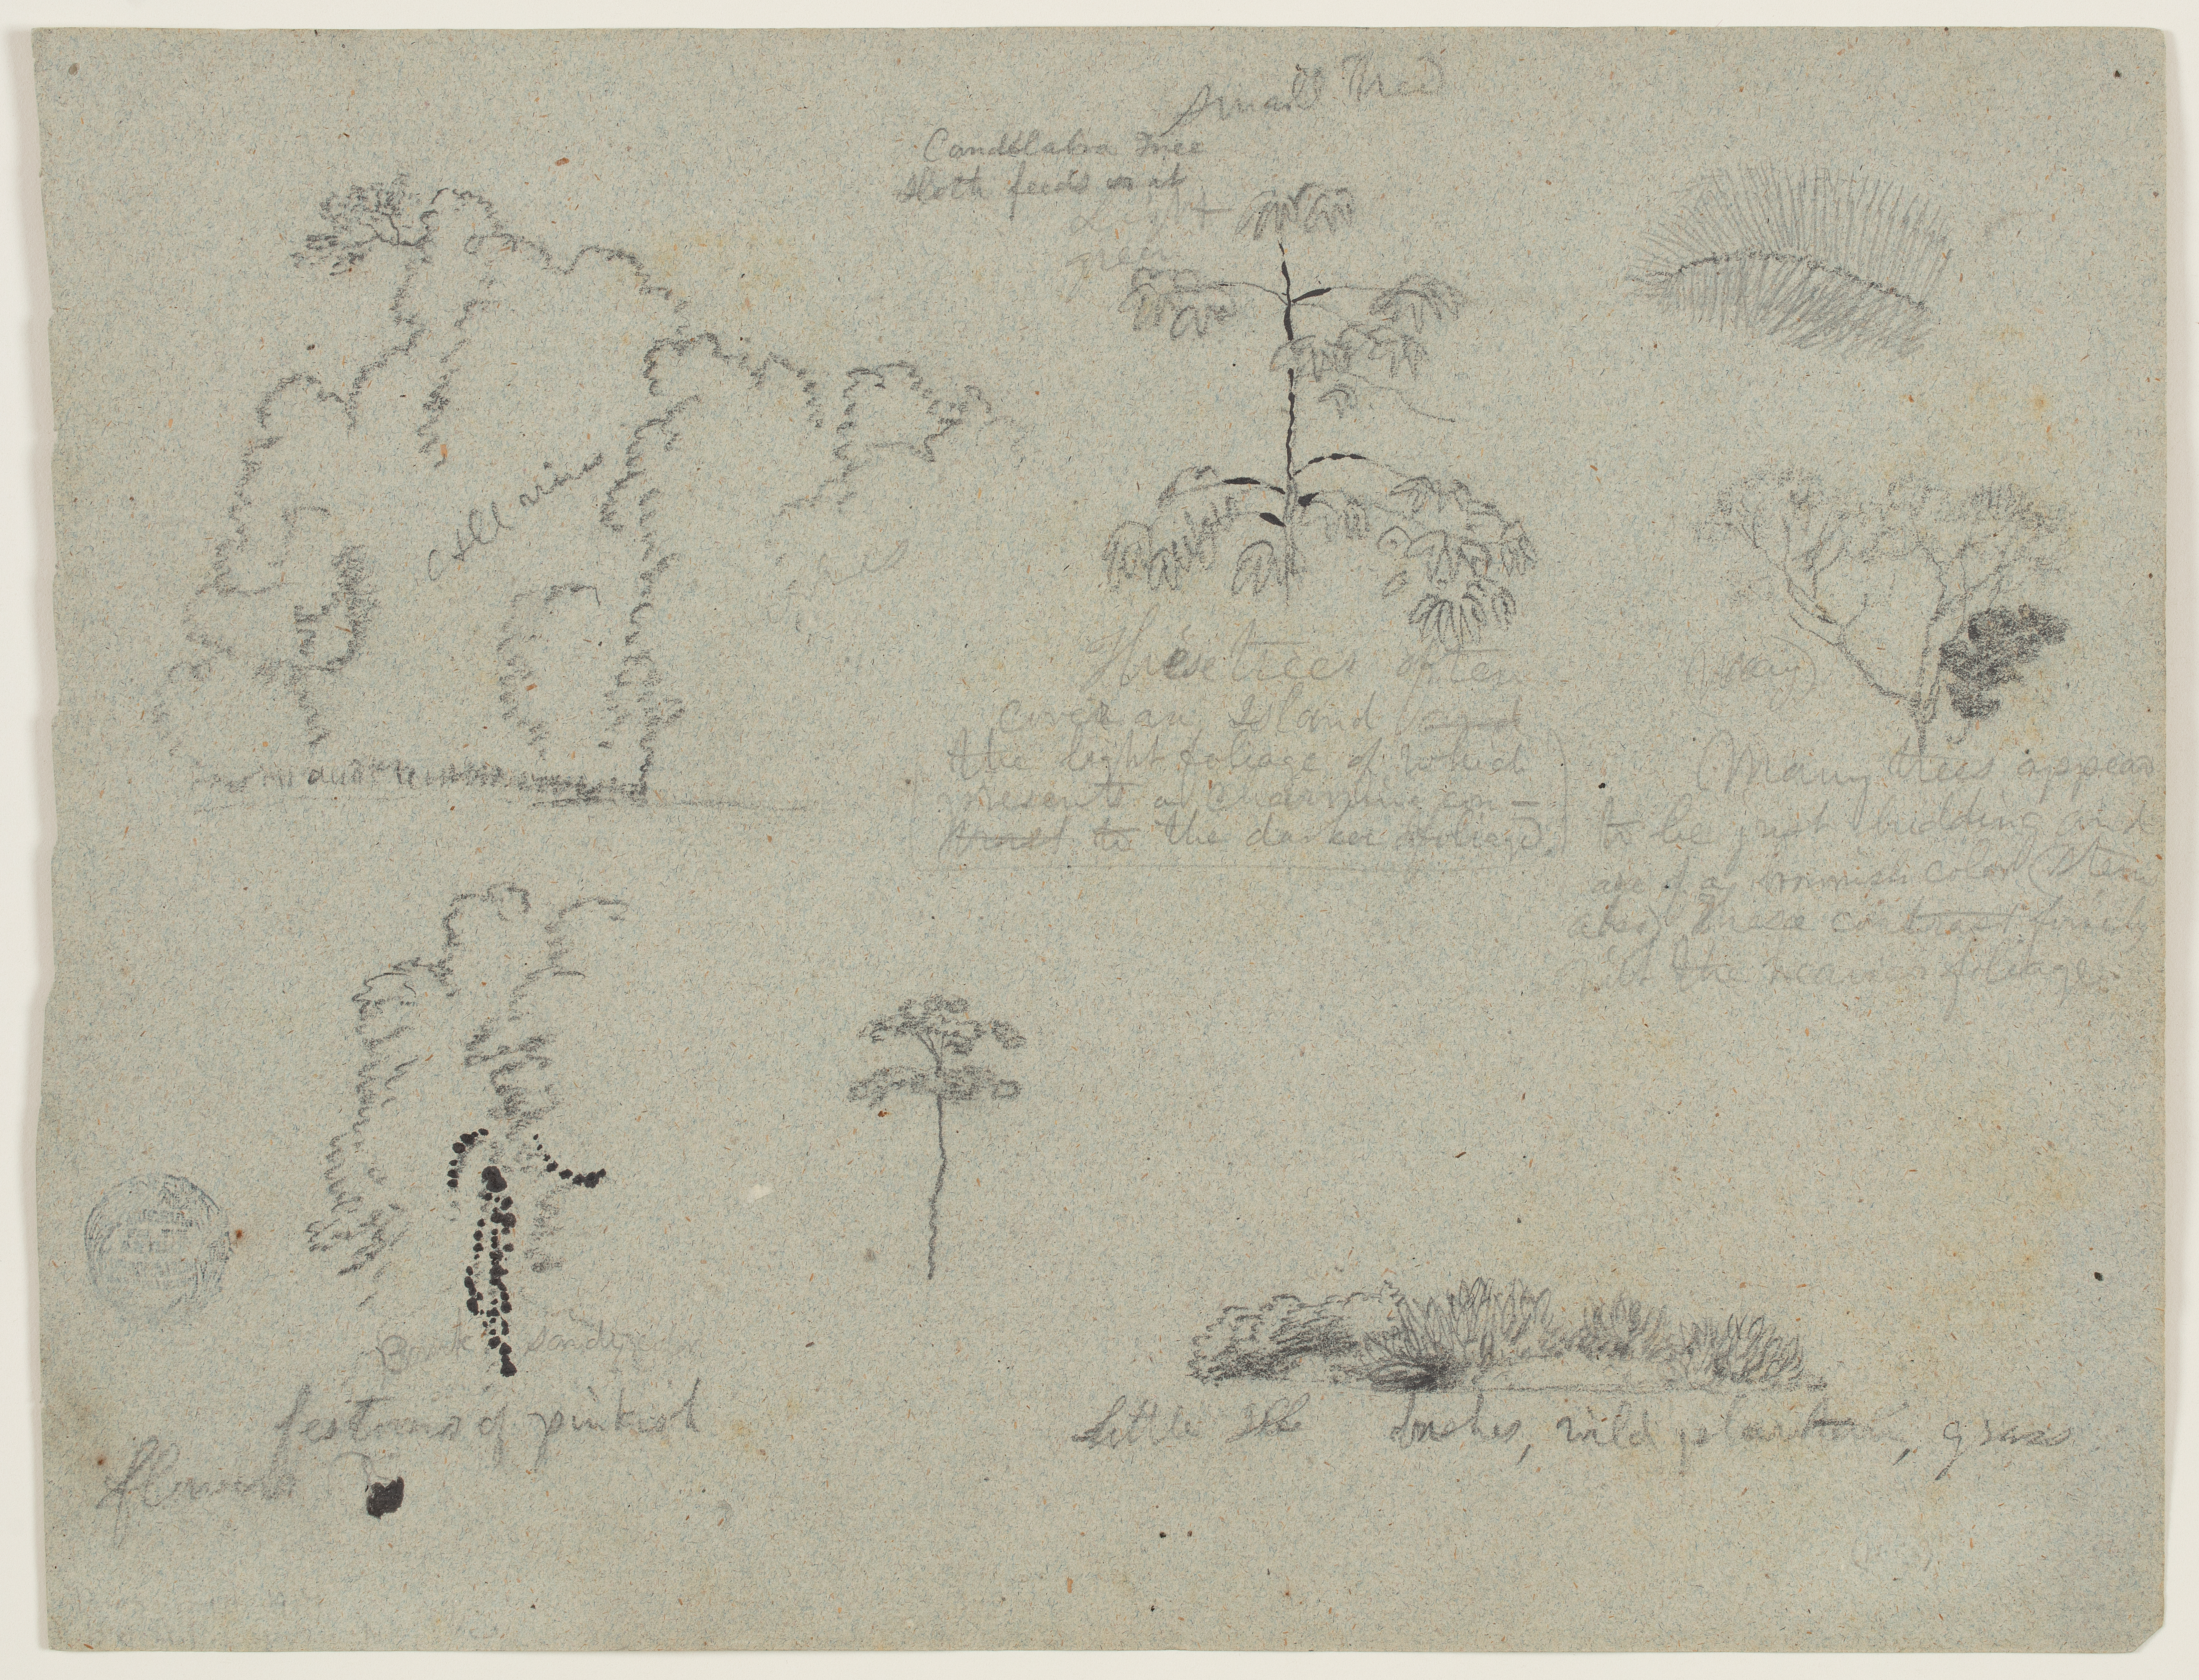 Small Tree
Candelabra Tree
Sloth feeds on at
Light
green
all vines
vines
These trees often
cover an Island and
the light foliage of which
presents a charming con-
trast to the darker foliage.
(May)
(Many trees appear
to be just budding and
are of a brownish color (stems
also) these contrast finely
with the nearer foliage.
festoons of pinkish
flowers
Little Isle bushes, wild plantain, grass